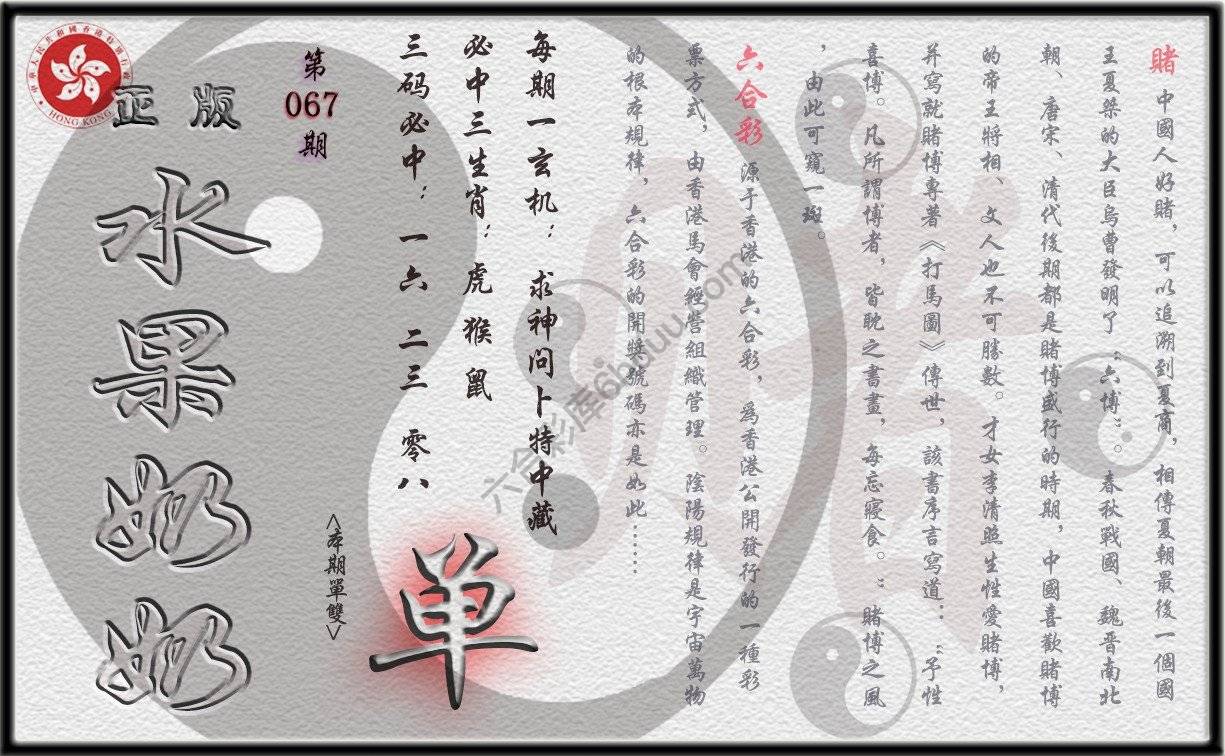 賭 中國人好賭，可以追溯到夏商，相傳夏朝最後一個國
王夏桀的大臣烏曹發明了“六博”。春秋戰國、魏晋南北
朝、唐宋、清代後期都是賭博盛行的時期，中國喜歡賭博
的帝王將相、文人也不可勝數。才女李清照生性愛賭博，
并寫就賭博專著《打馬圖》傳世，該書序言寫道：“予性
喜博。凡所謂博者，皆耽之書畫，每忘寢食。”賭博之風
，由此可窺一斑。
六合彩 源于香港的六合彩，爲香港公開發行的一種彩
票方式，由香港馬會經營組織管理。陰陽規律是宇宙萬物
的根本規律，六合彩的開獎號碼亦是如此……
每期一玄机：求神問卜特中藏
必中三生肖：虎猴鼠
三码必中：一六 二三 零八
单
<本期單雙>
第
067
期
正版
水果奶奶
HONG KONG
六合彩库6huuu.com